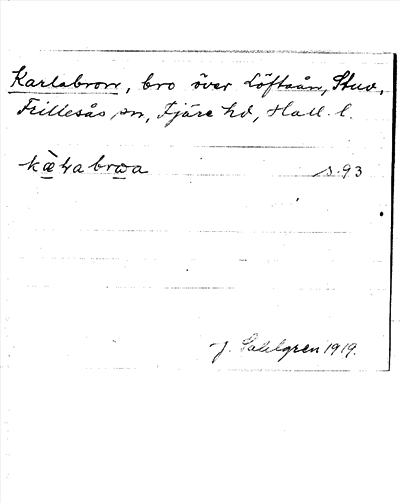 Karlabron, bro över Löftaån, Stuv,
Frillesås sn, Fjäre hd, Hall. l.
kæ̀ɽa brωa s. 93
J. Sahlgren 1919.